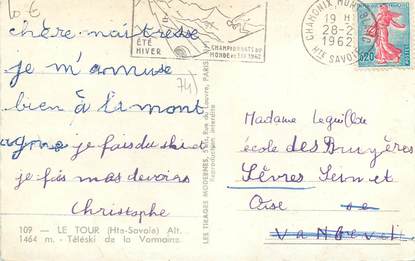 6 €
chère maitresse
je m'amuse
bien à la mont
agne je fais du ski et
je fais mes devoirs
Christophe
74)
109 - LE TOUR (Hte-Savoie) Alt.
1464 m. - Téléski de la Vormaine.
LES TIRAGES MODERNES, Rue du Louvre, PARIS
Reproduction interdite
ÉTÉ
HIVER
CHAMPIONNATS DU
MONDE DE SKI 1962
CHAMONIX MONT BLANC
19 H
28-2
1962
HTE SAVOIE
0,20
Madame Leguillou
école des Bruyères
Sèvres Seine et
Oise